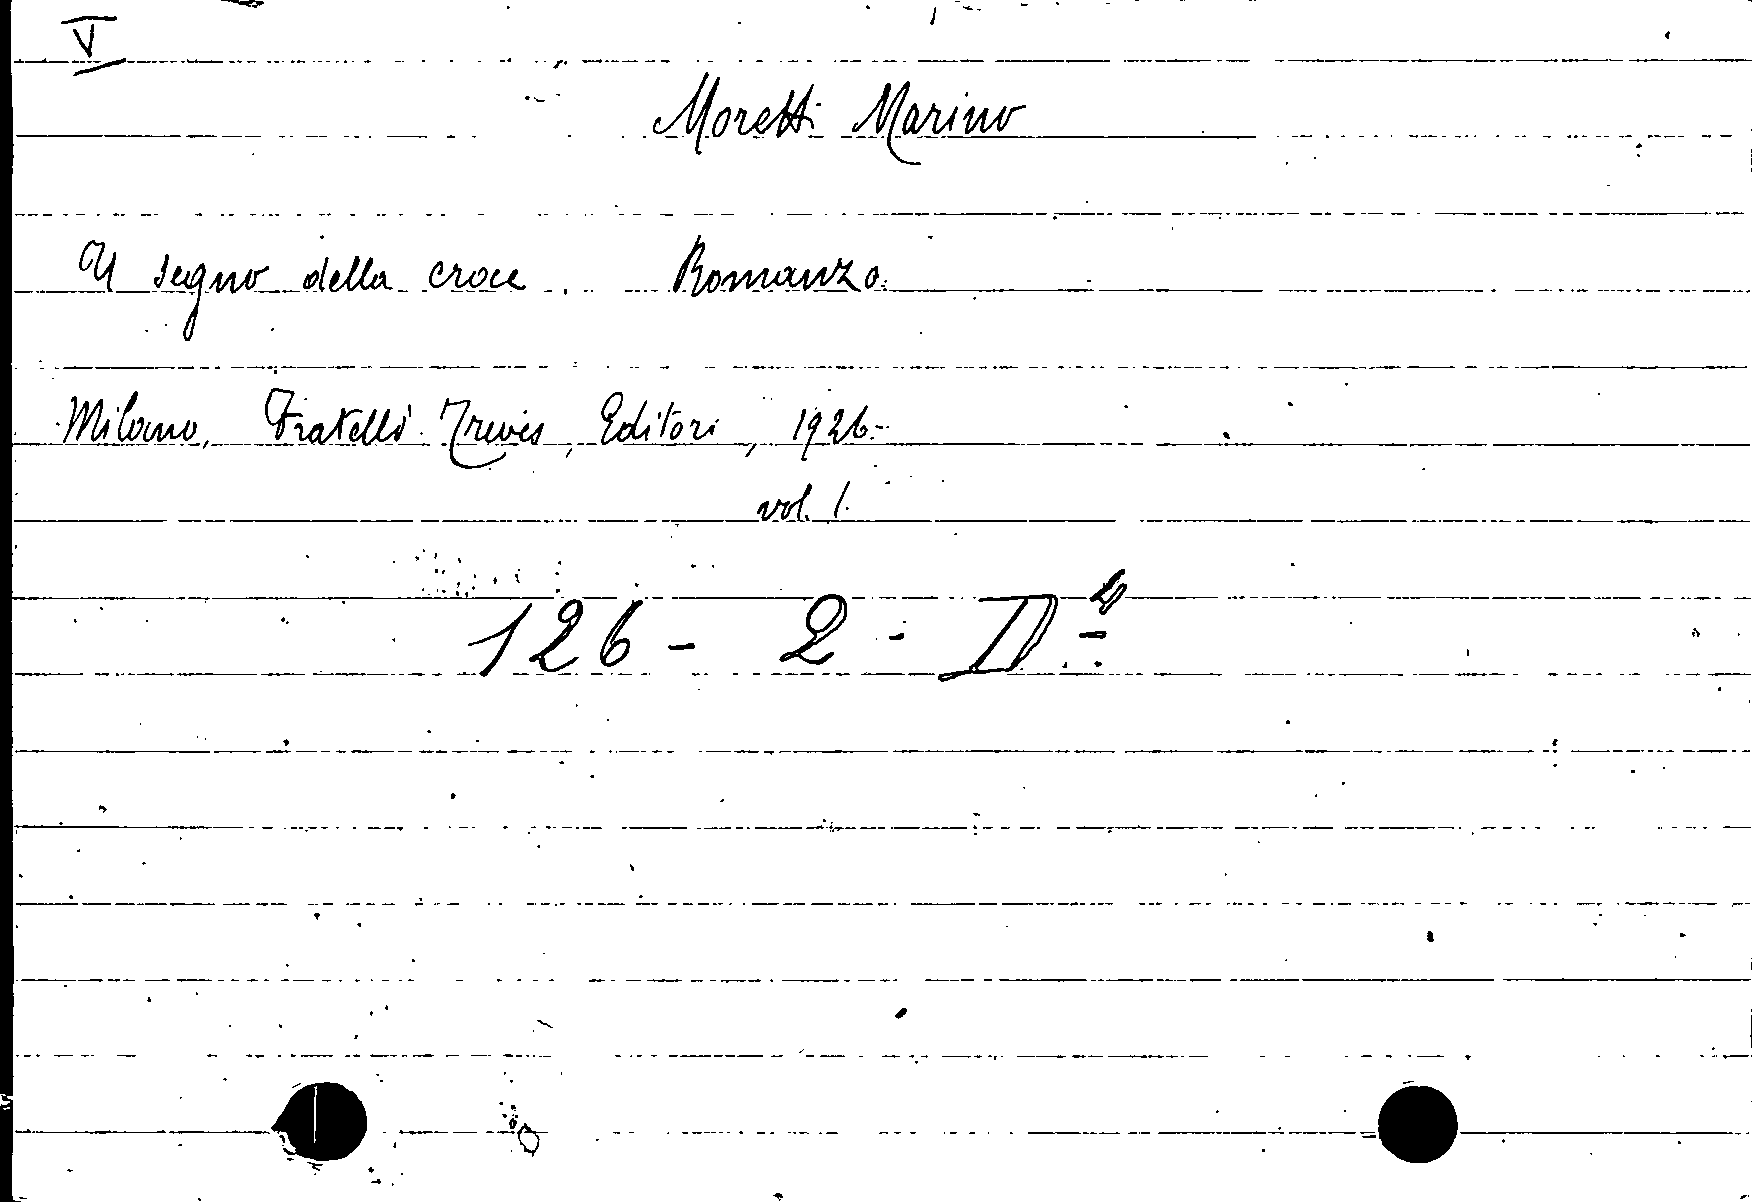 V
Moretti Marino
Il segno della croce. Romanzo.
Milano, Fratelli Treves, Editori, 1926.-
vol. 1.
126 - 2 - D